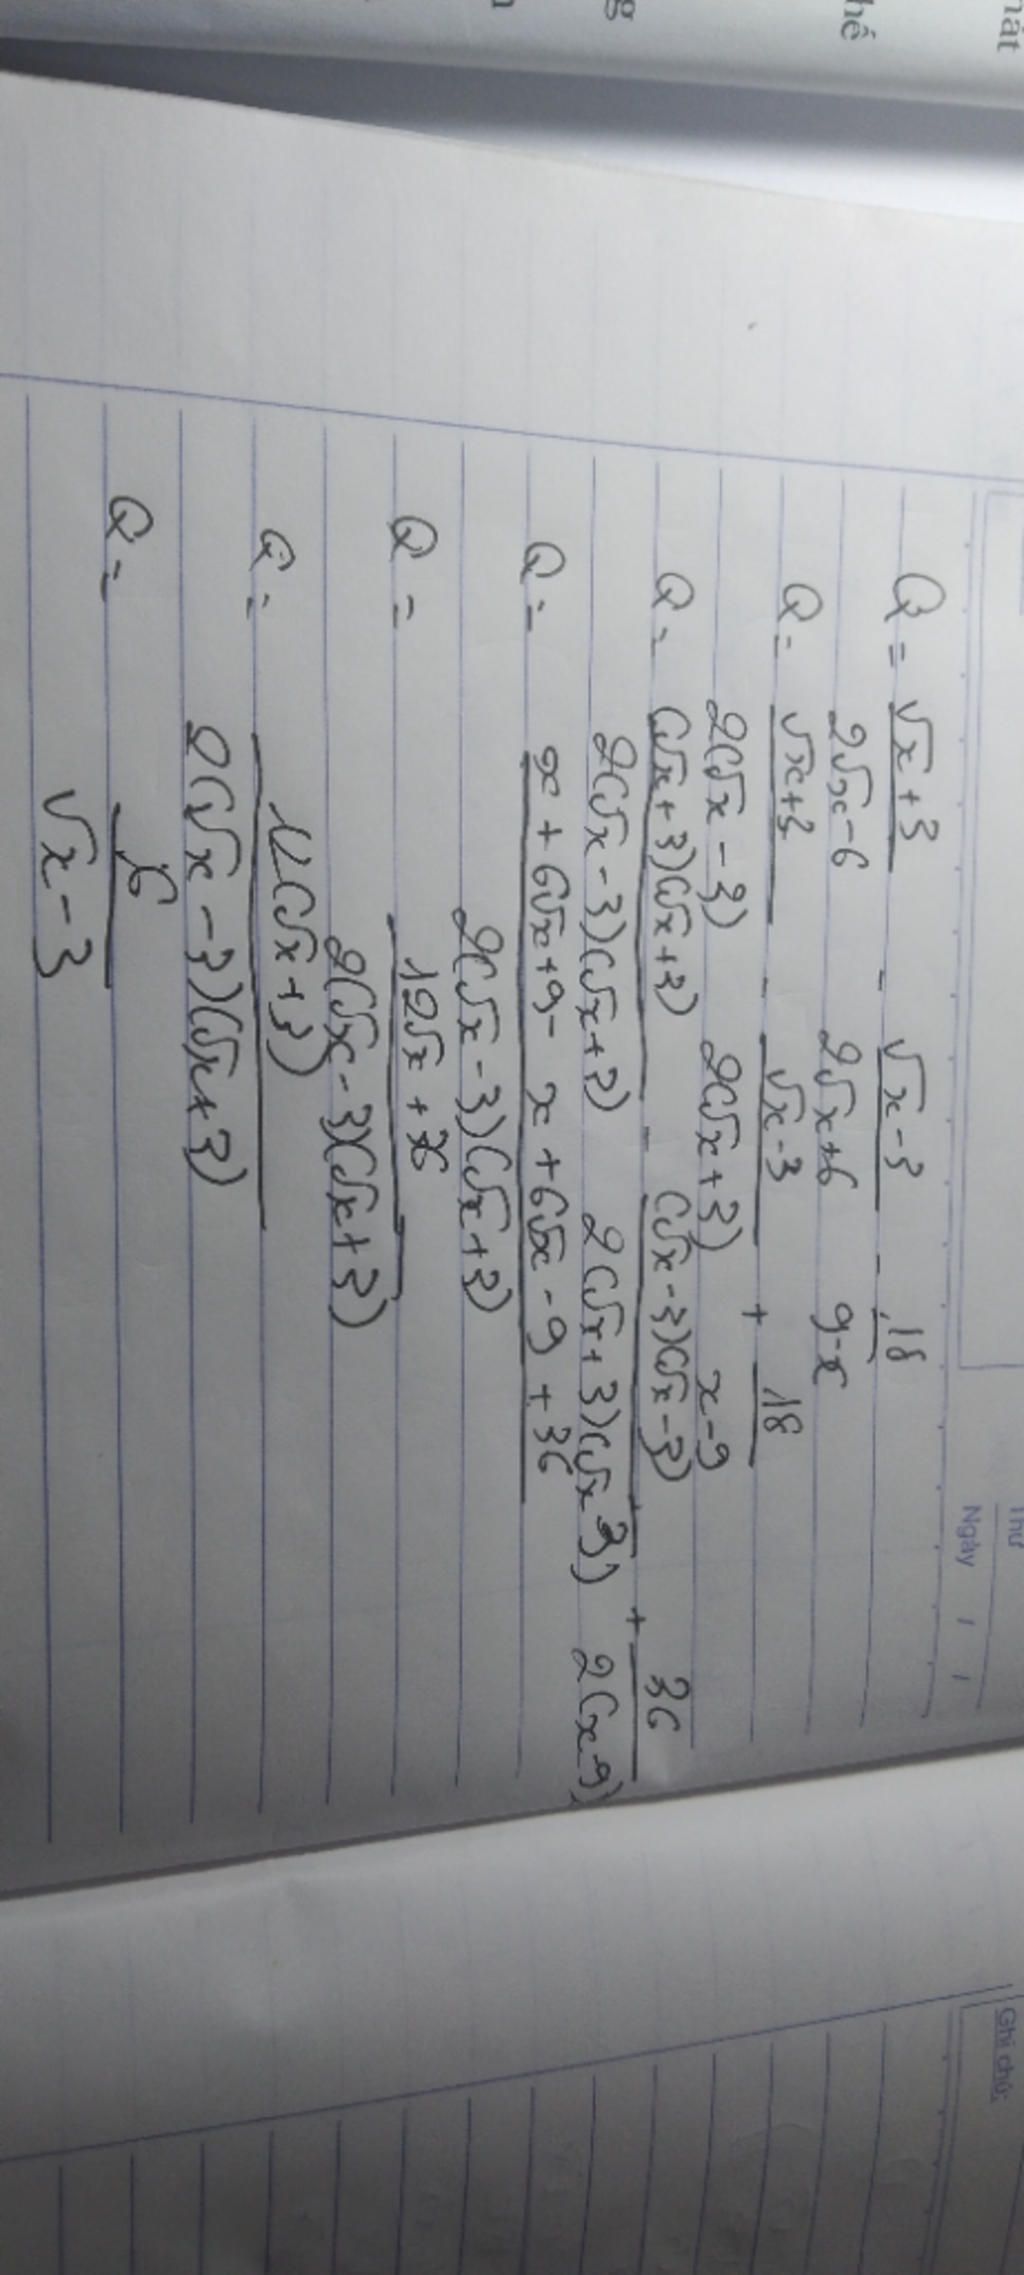 mát
hế
g
Thứ
Ngày / /
Q = √x+3 / 2√x-6 - √x-3 / 2√x+6 - 18 / 9-x
Q = √x+3 / 2(√x-3) - √x-3 / 2(√x+3) + 18 / x-9
Q = (√x+3)(√x+3) / 2(√x-3)(√x+3) - (√x-3)(√x-3) / 2(√x+3)(√x 3) + 36 / 2(x-9)
Q = x+6√x+9-x+6√x-9+36 / 2(√x-3)(√x+3)
Q = 12√x+36 / 2(√x-3)(√x+3)
Q = 12(√x+3) / 2(√x-3)(√x+3)
Q = 6 / √x-3
Ghi chú: